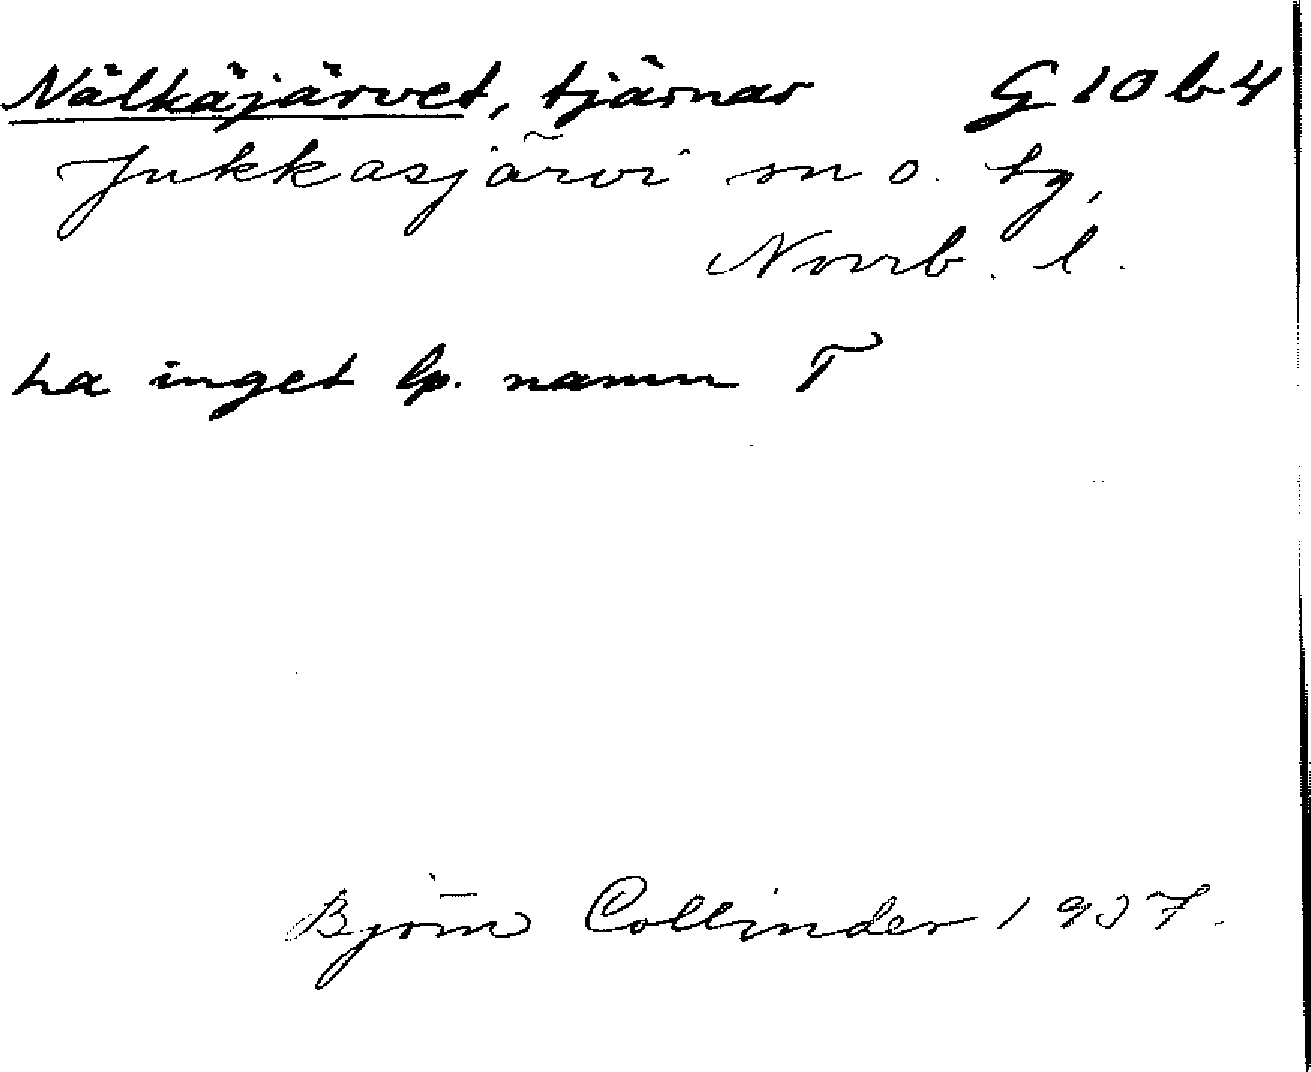 Nälkäjärvet, tjärnar G 10 b 4
Jukkasjärvi sn o. tg,
Norrb. l.
ha inget lp. namn T
Björn Collinder 1937.